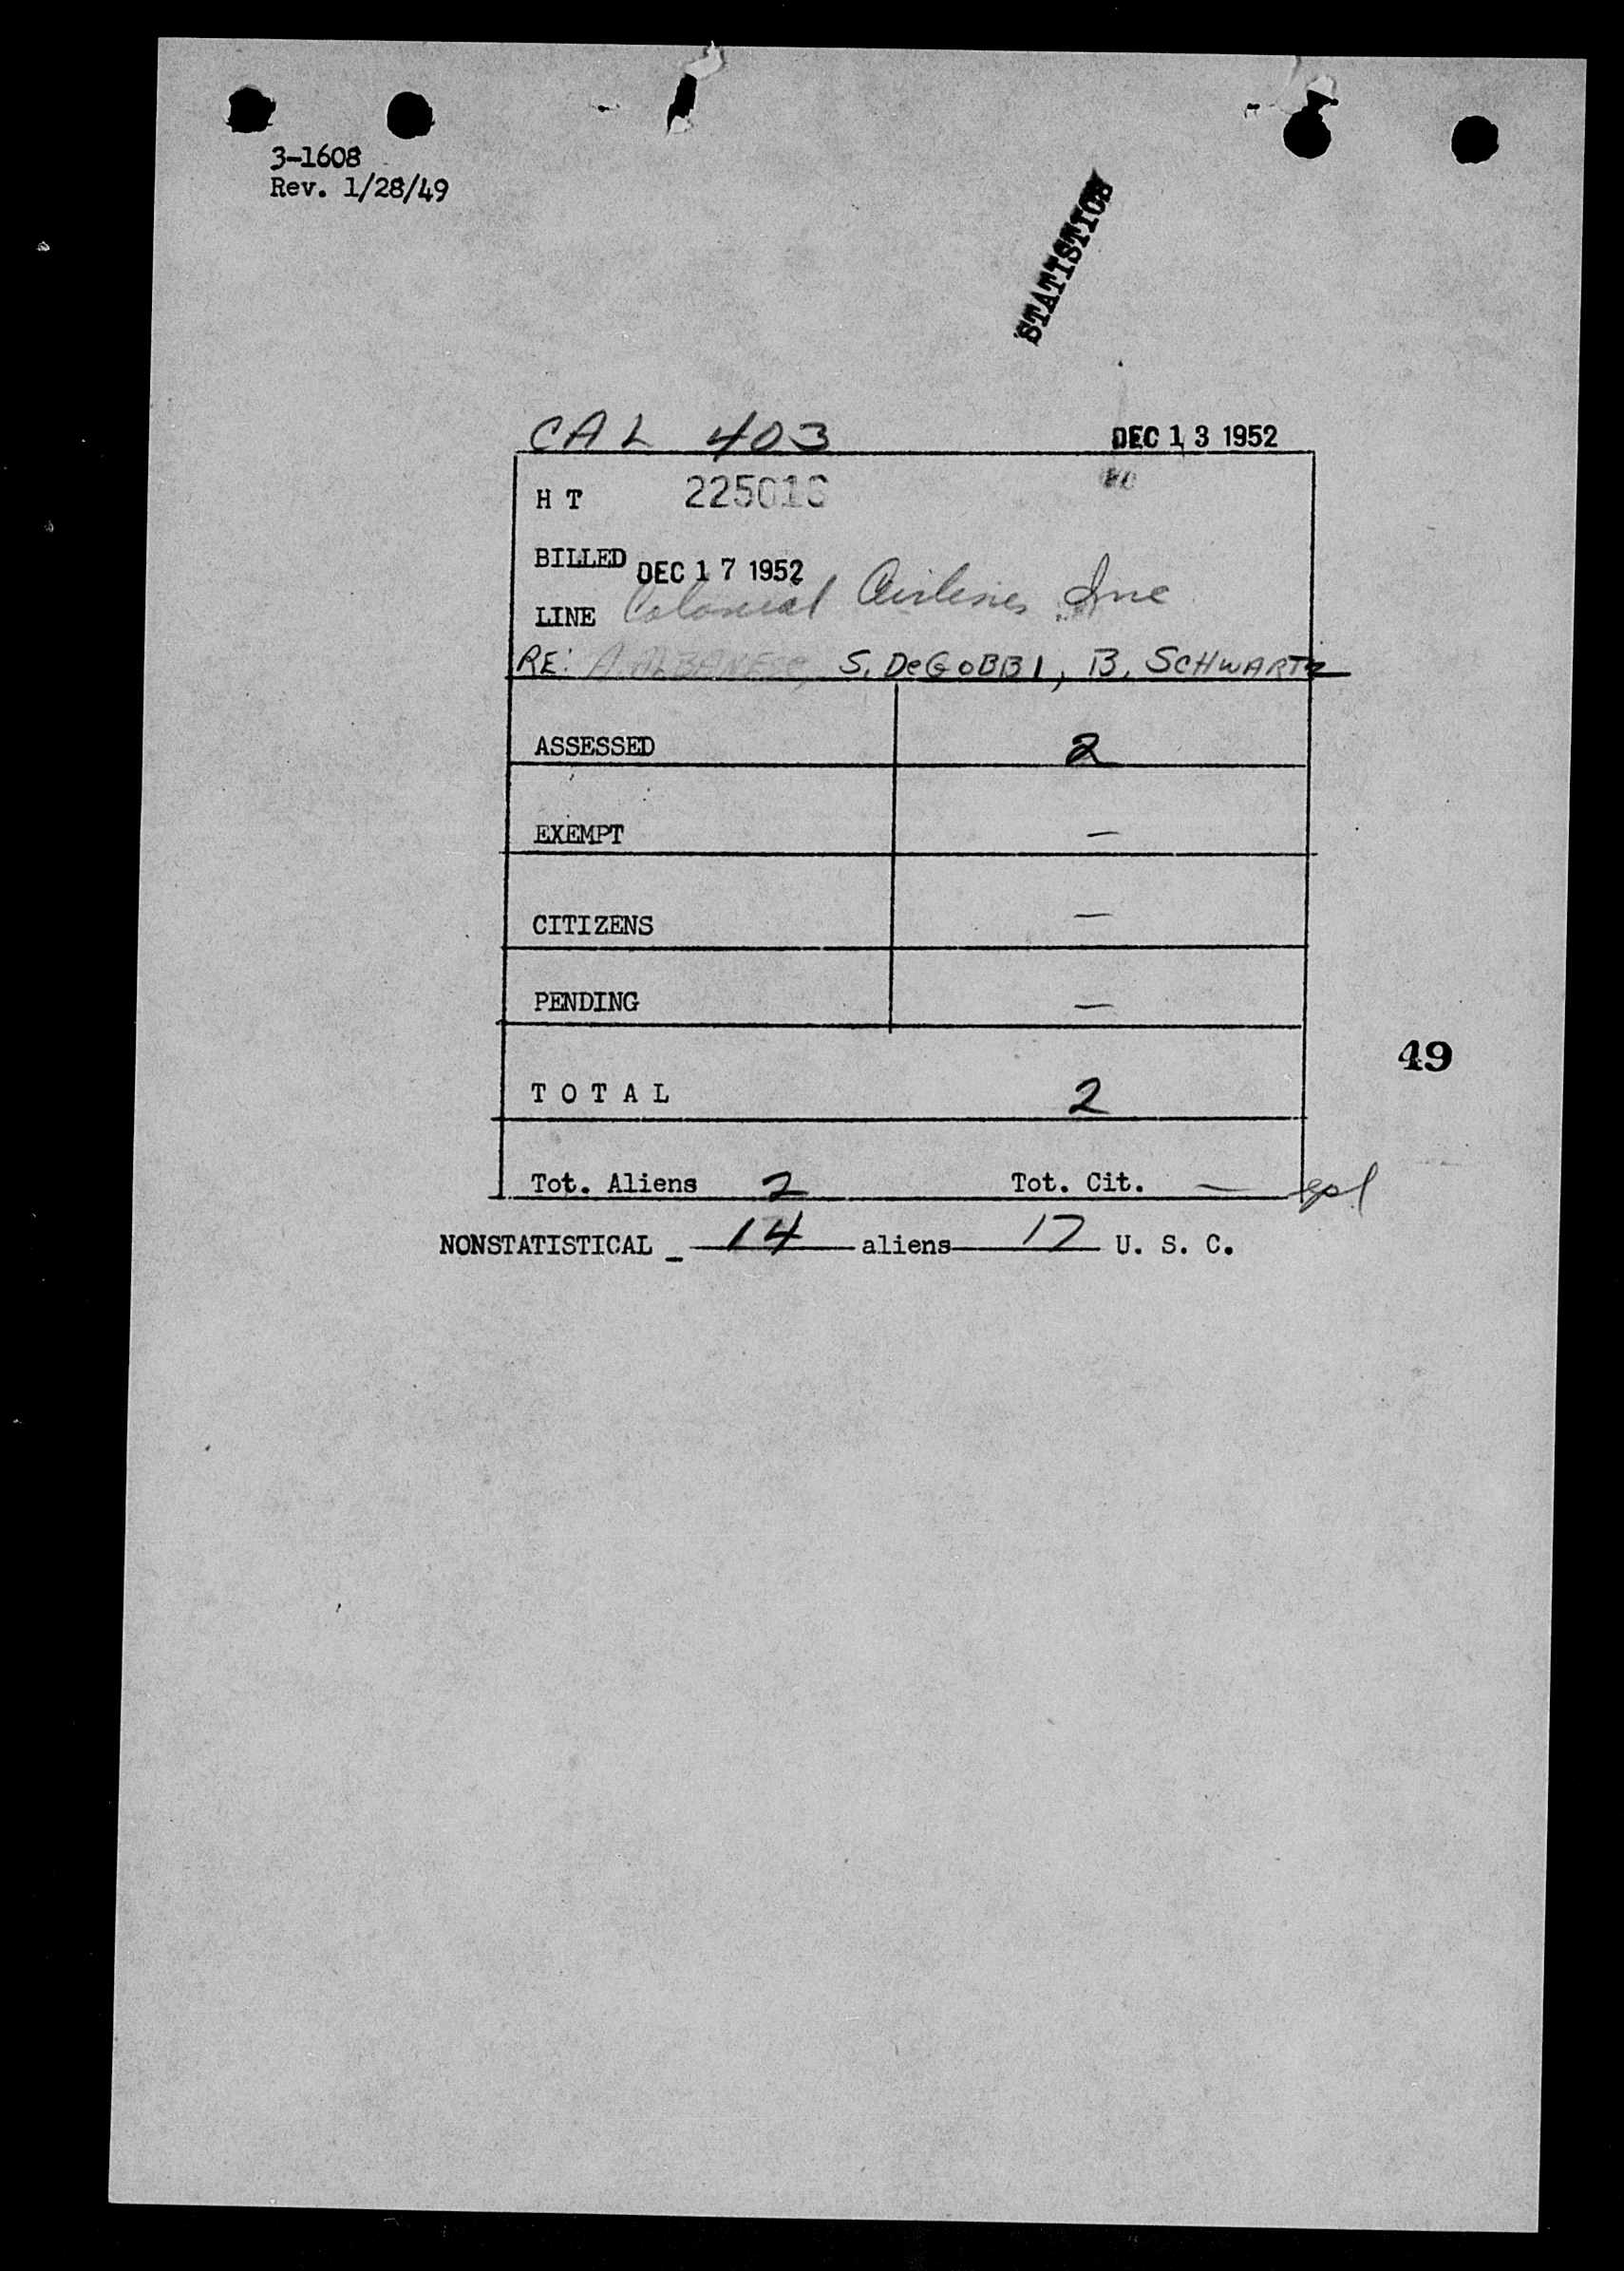 3-1608
Rev. 1/28/49
STATISTICS
CAL 403 DEC 13 1952
H T 225013
BILLED DEC 17 1952
LINE Colonial Airlines Inc
RE: A ALBANESE, S. DeGOBBI, B. SCHWARTZ
ASSESSED 2
EXEMPT —
CITIZENS —
PENDING —
49
T O T A L 2
Tot. Aliens 2 Tot. Cit. —
NONSTATISTICAL - 14 aliens 17 U. S. C.